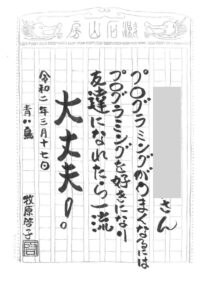 漱石山房
さん
プログラミングがうまくなるには
プログラミングを好きになり
友達になれたら一流
大丈夫!。
令和二年三月十七日
青い鳥
牧原